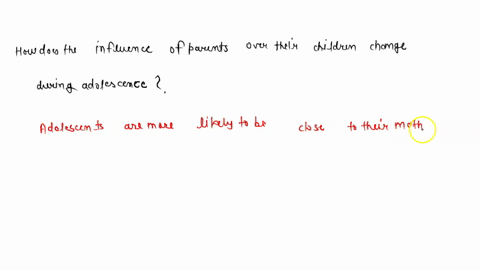 How does the influence of parents over their children change
during adolescence ?.
Adolescents are more likely to be close to their moth